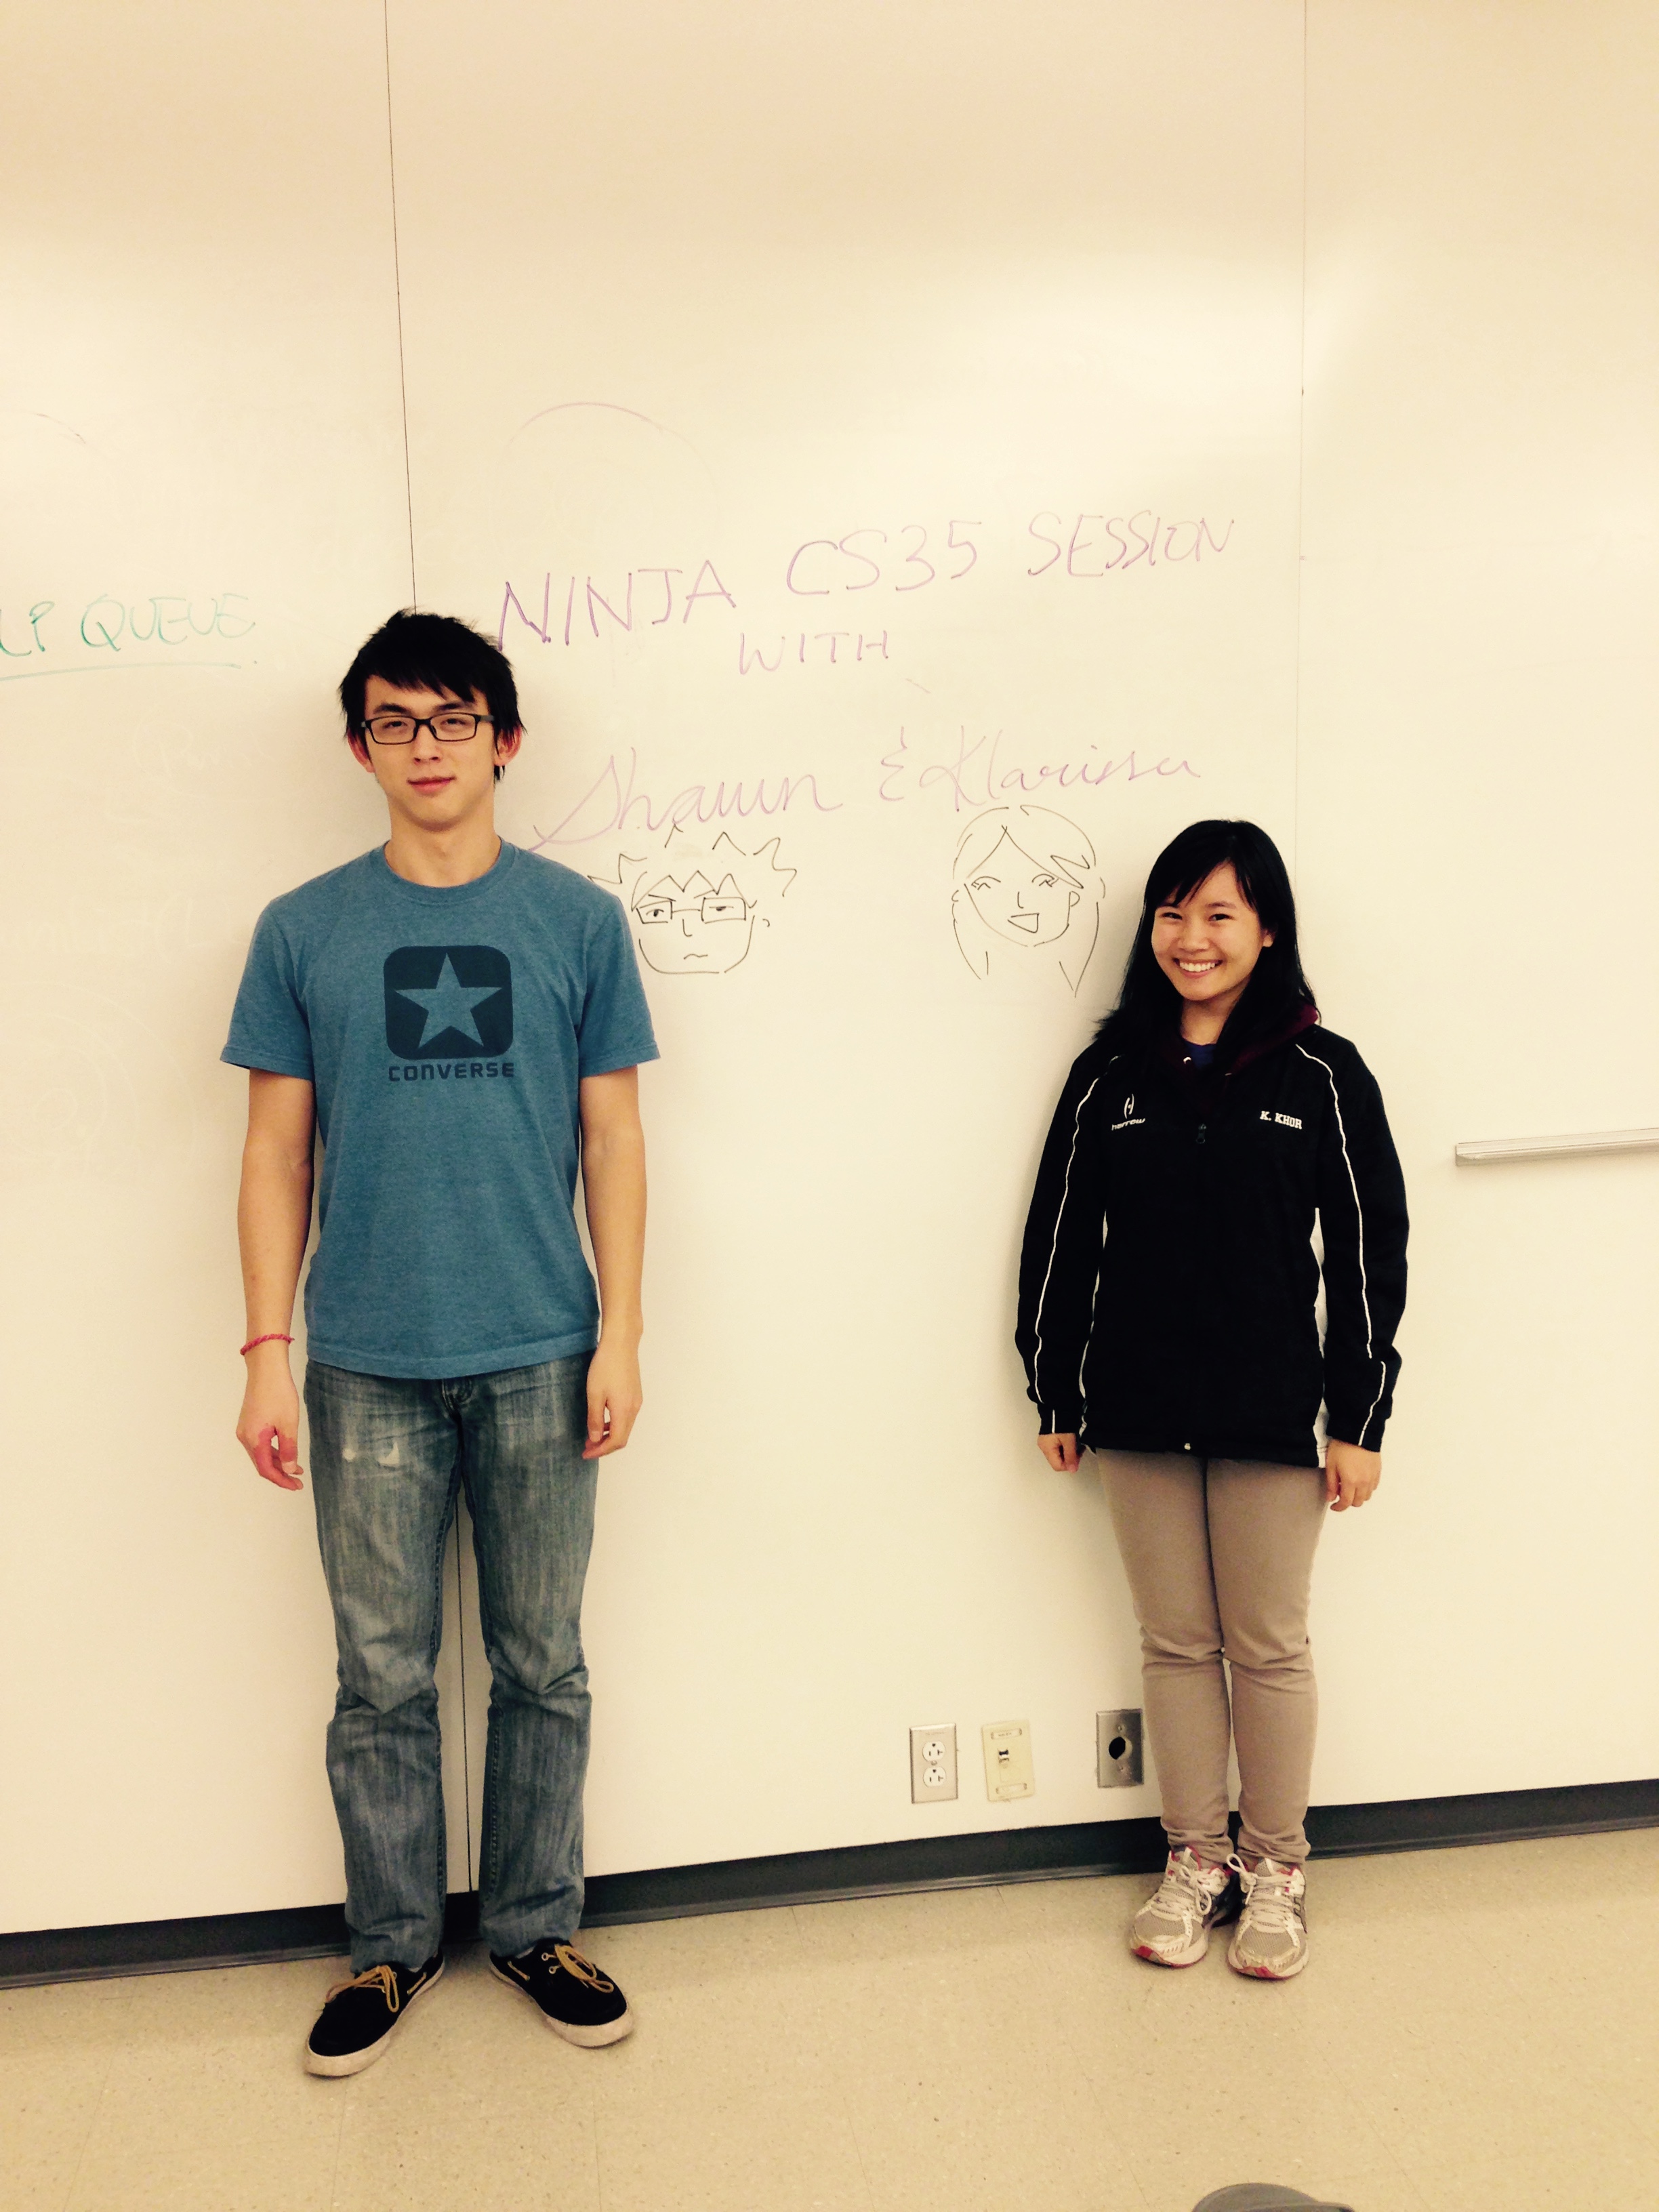 QUEUE
NINJA CS35 SESSION
WITH
Shawn & Klarissa
CONVERSE
harrow
K. KHOR